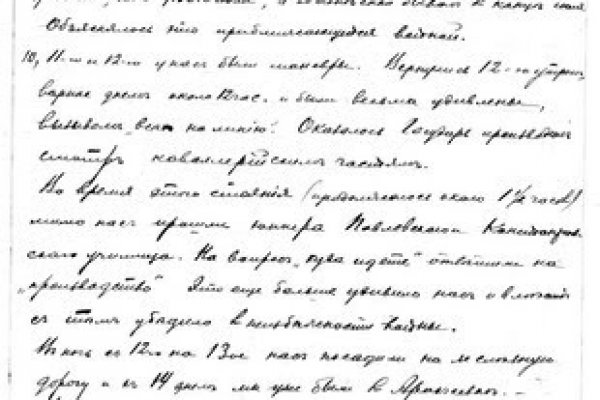 Объяснялось это приближающейся войной.
10, 11-го и 12-го у нас были маневры. Вернулись 12-го утром,
вернее днем около 12 час. и были весьма удивлены,
вызовом "всех на линию". Оказалось Государь производил
смотр кавалерийским частям.
Во время этого стояния (продолжалось около 1½ часов)
мимо нас прошли юнкера Павловского Константинов-
ского училища. На вопрос "куда идете" ответили на
"производство" Это еще больше удивило нас и
с тем убедило в неизбежности войны.
В ночь с 12го на 13ое нас посадили на железную
дорогу и 14 днем мы уже были в